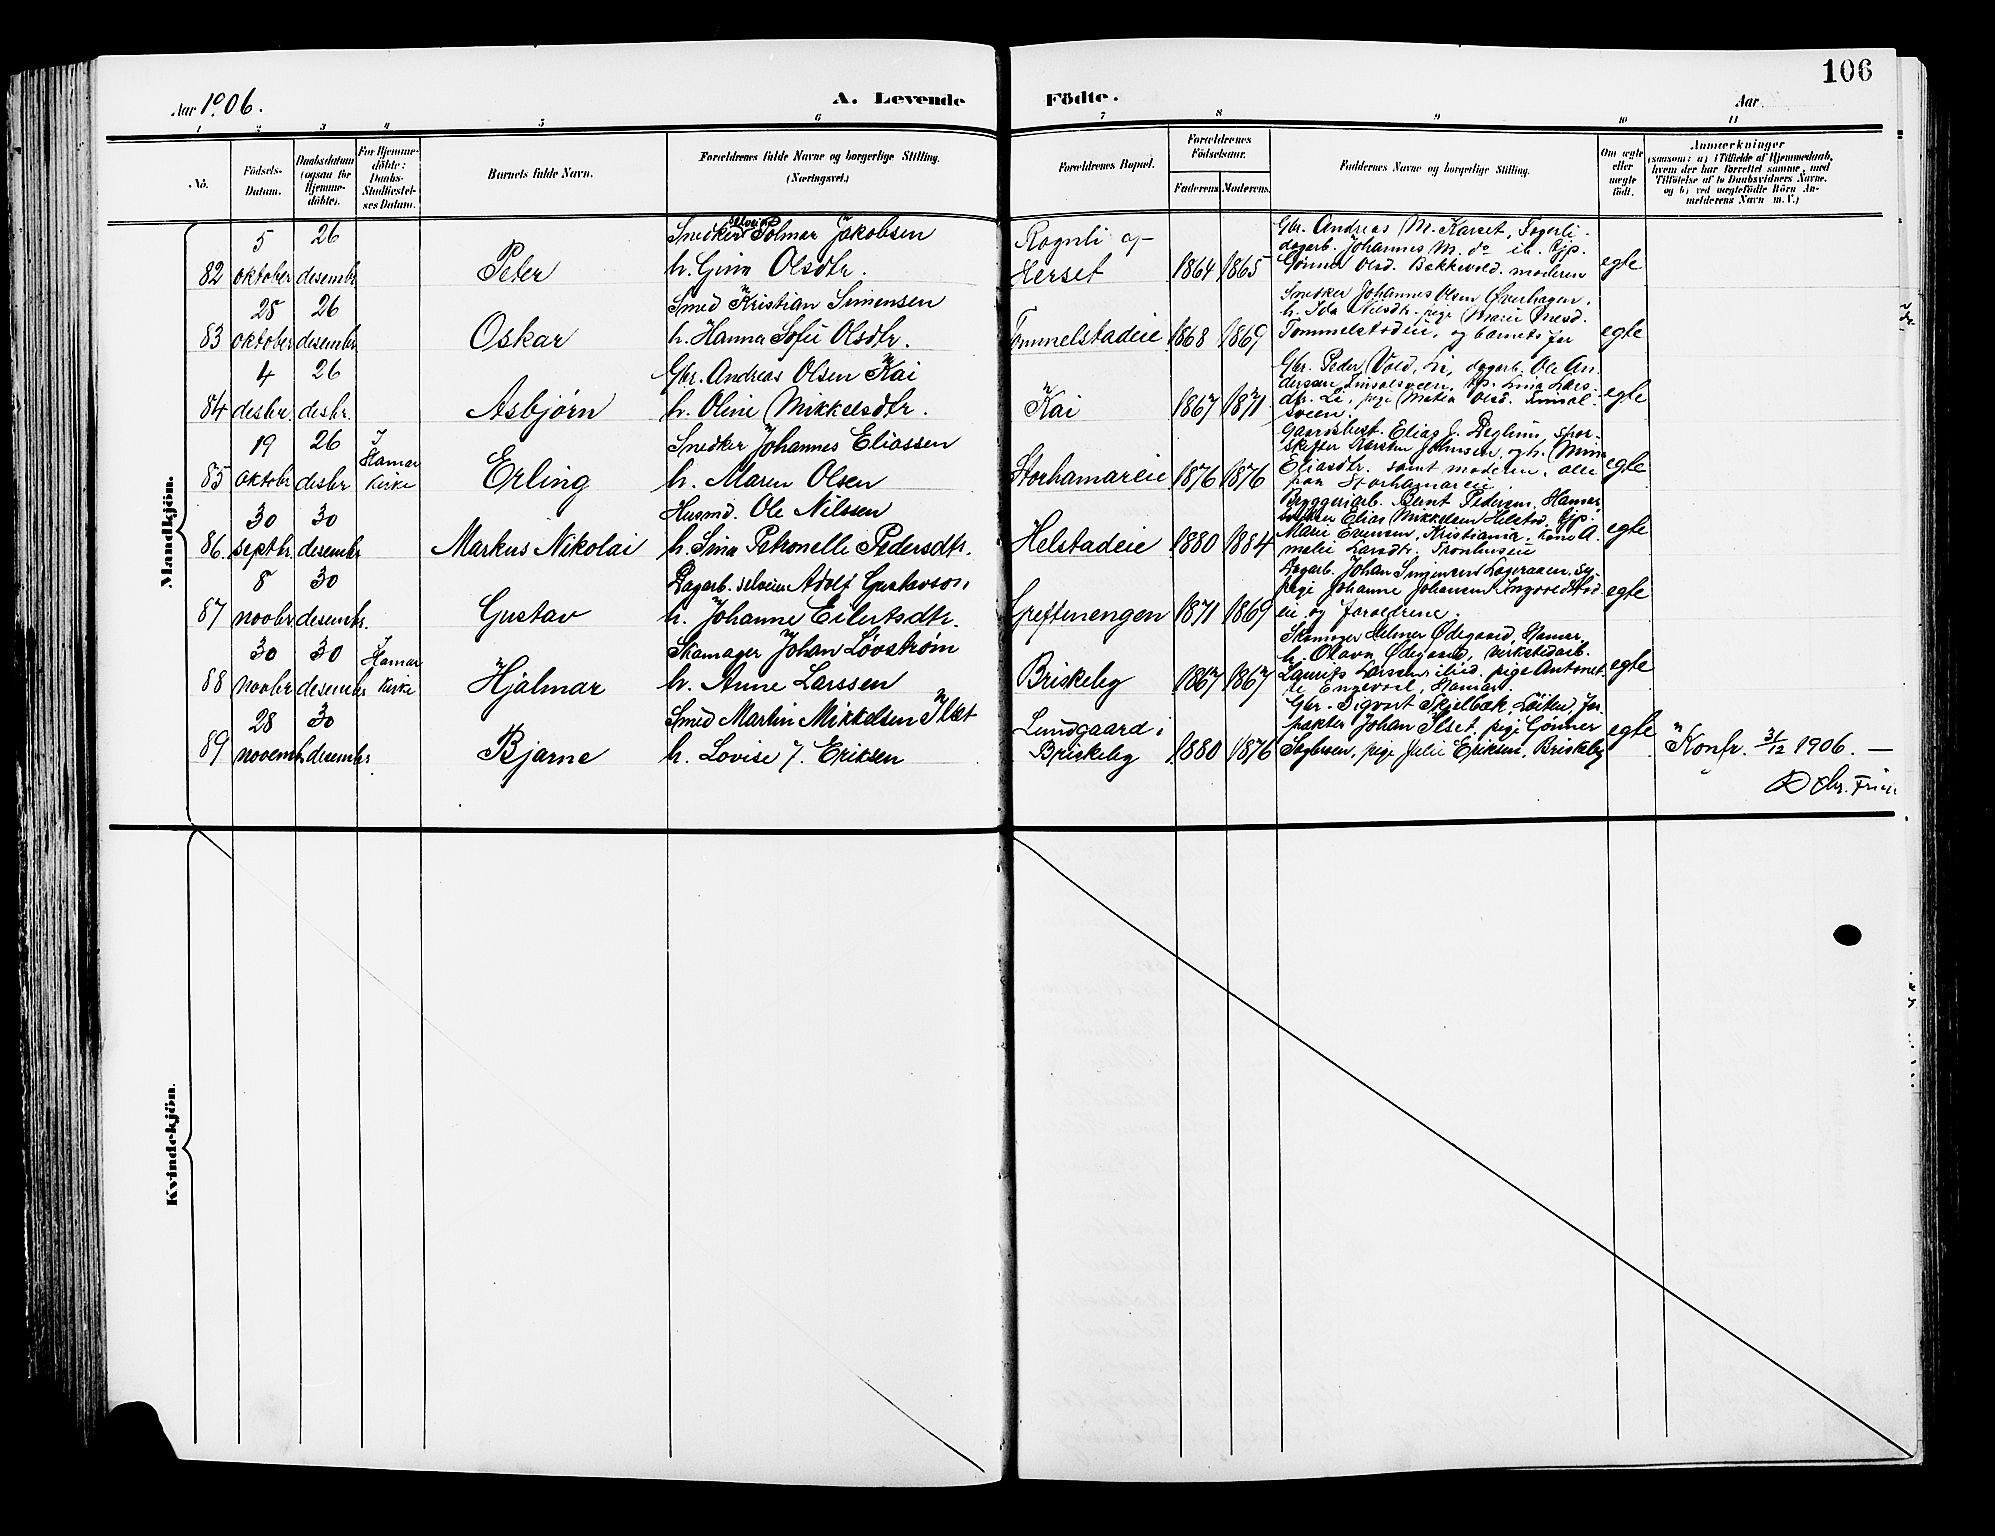 106
Aar 1906.
A. Levende Födte.
Aar
1 2 3 4 5 6 7 8 9 10 11
No.
Födsels-Datum.
Daabsdatum (ogsaa for Hjemmedöbte).
For Hjemmedöbte: Daabs-Stadfæstelses Datum.
Barnets fulde Navn.
Forældrenes fulde Navne og borgerlige Stilling. (Næringsvei.)
Forældrenes Bopæl.
Forældrenes Födselsaar.
Faderens. Moderens.
Faddernes Navne og borgerlige Stilling.
Om ægte eller uægte födt.
Anmærkninger
(saasom: a) i Tilfælde af Hjemmedaab, hvem der har forrettet samme, med Tilföielse af to Daabsvidners Navne, og b) ved uægtefödte Börn Anmelderens Navn m. V.)
Mandkjön.
82
5 oktober
26 desembr
Peter
Snedker selveier Tolmar Jakobsen
h. Gina Olsdtr.
Rognli og
Herset
1864 1865
Gbr. Andreas M. Karset, Fagerli.
dagarb. Johannes M. do ib. Gjp.
Gønner Olsd. Bakkevold. moderen
egte
83
28 oktober
26 desembr
Oskar
Smed Kristian Simensen
h. Hanna Sofie Olsdtr.
Tommelstadeie
1868 1869
Snedker Johannes Olsen Øverhagen,
h. Ida Nilsdtr. pige Marie Olesd.
Tommelstadeie, og barnets far
egte
84
4 desbr.
26 desbr.
Asbjørn
Gbr. Andreas Olsen Kai
h. Oline Mikkelsdtr.
Kai
1867 1871
Gbr. Peder Vold, Li, dagarb. Ole An-
dersen Linsalsveen, Gjp. Lina Lars-
dtr. Li, pige Matea Olsd. Linsal-
sveen.
egte
85
19 oktobr
26 desbr
I Hamar kirke
Erling
Snedker Johannes Eliassen
h. Maren Olsen
Storhamareie
1876 1876
Gaardsbest. Elias J. Deglum, spor-
skifter Karsten Johnsen, og h. Mina
Eliasdtr. samt moderen, alle
paa Storhamareie
egte
86
30 septbr.
30 desembr
Markus Nikolai
Husmd. Ole Nilssen
h. Sina Petronelle Pedersdtr.
Helstadeie
1880 1884
Bryggeriarb. Bernt Pedersen, Hamar,
Elias Mikkelsen Helstad, Gjp.
Marie Evensen, Kristiania, kone A-
malie Larsdtr. Tronhuseie
egte
87
8 novbr
30 desembr.
Gustav
Dagarb. selveier Adolf Gustavson
h. Johanne Eilertsdtr.
Greftenengen
1871 1869
Dagarb. Johan Lageraaen, sy-
pige Johanne Johansen Ingvoldstad
eie og forældrene.
egte
88
30 novbr
30 desembr
I Hamar kirke
Hjalmar
Skomager Johan Løvstrøm
h. Anne Larssen
Briskeby
1867 1867
Skomager Helmer Ødegaard, Hamar,
h. Olava Ødegaard, virkstedarb.
Laurits Larsen ibid. pige Antonet-
te Engevol, Hamar.
egte
89
28 novemb.
30 desembr
Bjarne
Smed Martin Mikkelsen Ilset
h. Lovise J. Eriksen
Lundgaard i
Briskeby
1880 1876
Gbr. Sigvart Skjelbæk, Løiten, for-
pakter Johan Ilset, pige Gønner
Seglesen, pige Julie Eriksen, Briskeby
egte
Konfr. 31/12 1906. —
Chr. Friis
Kvindekjön.